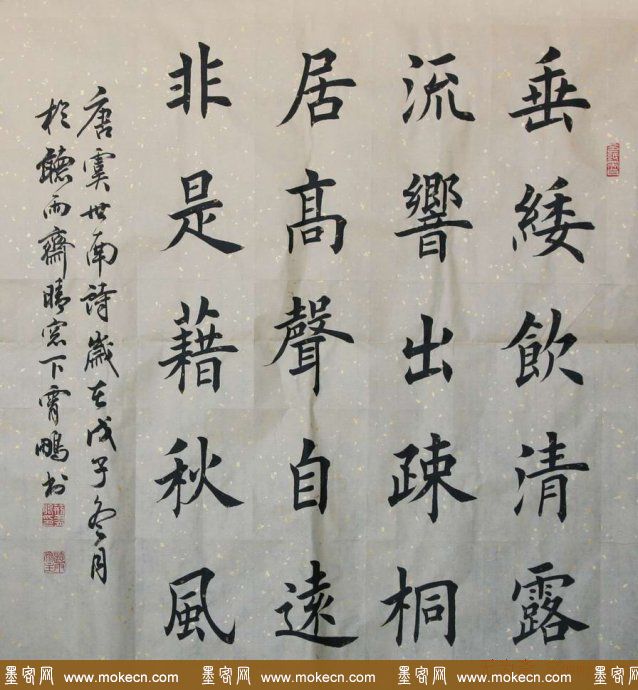 垂緌飲清露
流響出疎桐
居高聲自遠
非是藉秋風
唐虞世南詩歲在戊子冬月
於聽雨齋晴窓下霄鵬书
墨客网 www.mokecn.com 墨客网 www.mokecn.com 墨客网 www.mokecn.com